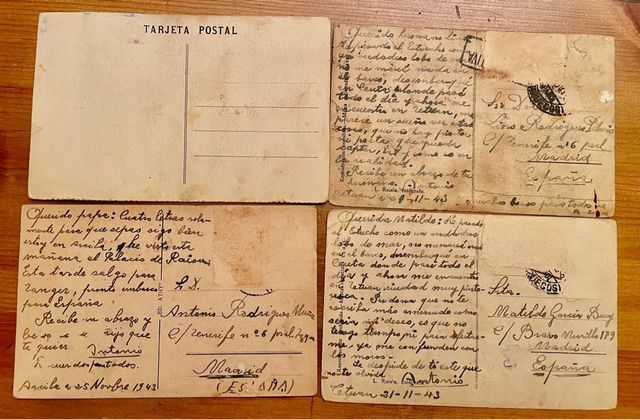 TARJETA POSTAL
Querido hermano
pasado el Estrecho con
verdadero lobo de
me mareé nada en
el barco, desembarqué
en Ceuta donde pasé
todo el día y ahora me
encuentro en Tetuan, me
parece un sueño ver estas
cosas, que no hay
ni poeta que pueda
tal y como es en
la realidad.
Recibe un abrazo de tu
hermano Antonio
Tetuan 21-11-43
L. Roisin, fotógrafo
Sr. D.
Lino Rodríguez
C/ Zenerife nº 6 pral
Madrid
España
Querido papa: Cuatro letras sola-
mente para que sepas sigo bien
estoy en Arcila, he visto esta
mañana el Palacio de Raisuni
Esta tarde salgo para
Tanger, pronto
para España.
Recibe un abrazo y
besos de tu hijo que
te quiere
Antonio
Recuerdos a todos.
Arcila a 25 Novbre 1943
S. D.
Antonio Rodríguez
C/ Zenerife nº 6 pral
Madrid
(ESPAÑA)
Querida Matilde: He pasado
el Estrecho como un verdadero
lobo de mar, no me mareé nada
en el barco, desembarqué en
Ceuta donde pasé todo el
día y ahora me encuentro
en Tetuan, ciudad muy pinto-
resca. Perdona que no te
escriba más amenudo como
sería mi deseo, es que no
tengo tiempo ni para afeitar-
me ya me confunden con
los moros.
Se despide de ti este que
no te olvida Antonio
Tetuan 21-11-43
L. Roisin, fotógrafo
Srta.
Matilde García
C/ Bravo Murillo 179
Madrid
España